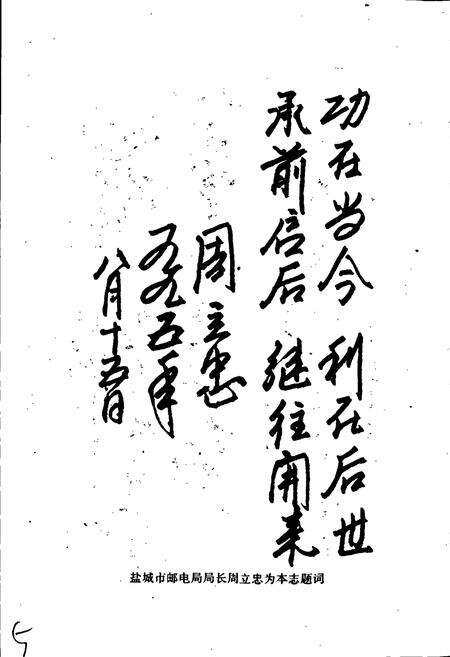 功在当今 利在后世
承前启后 继往开来
周立忠
一九九五年
八月十五日
盐城市邮电局局长周立忠为本志题词